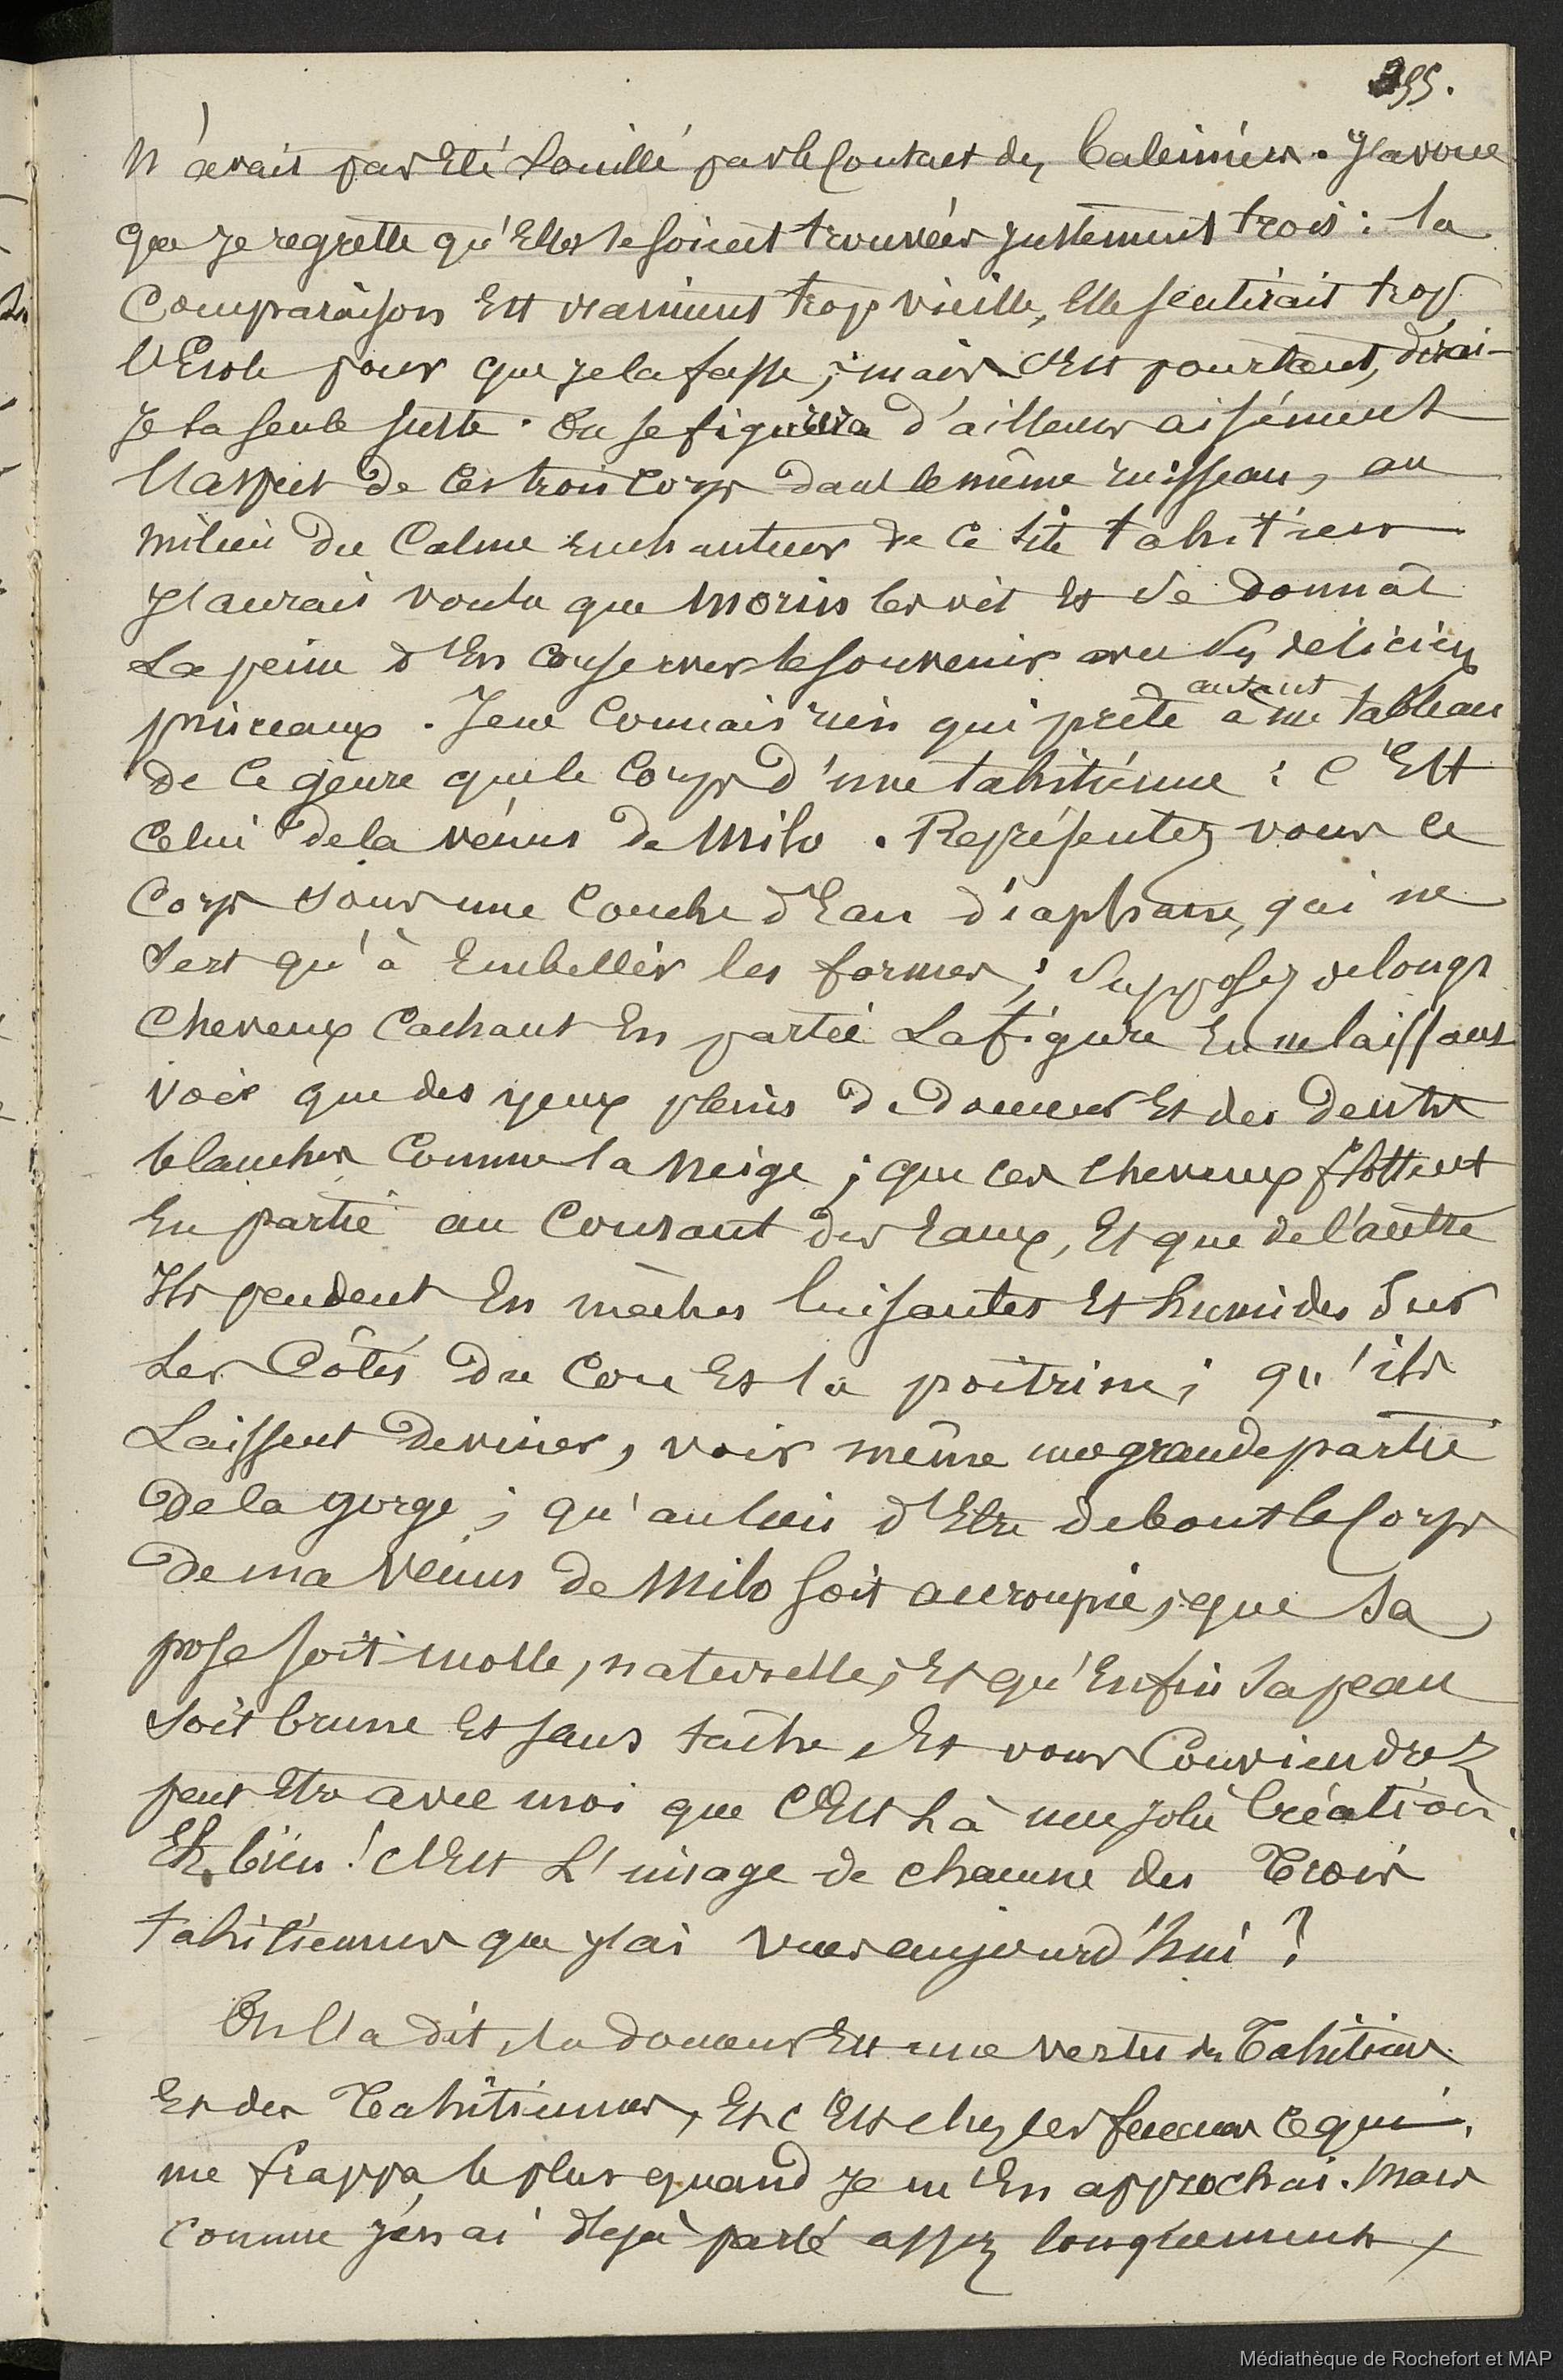 355.
n'avait pas Eté souillé par le Contact des baleiniers. J'avoue
que je regrette qu'Elles se soient trouvées justement trois : la
Comparaison Est vraiment trop vieille, Elle sentirait trop
l'Ecole pour que je la fasse ; mais c'Est pourtant, dirai-
je la seule juste. On se figurera d'ailleurs aisément
l'aspect de Ces trois Corps dans le même ruisseau, au
milieu du Calme enchanteur de ce site tahitien
J'aurais voulu que Morin les vit Et se donnat
La peine d'En conserver le souvenir avec ses délicieux
pinceaux. Je ne Connais rien qui prête autant à un tableau
de ce genre que le Corps d'une tahitienne : C'Est
Celui de la vénus de Milo. Représentez vous ce
Corps sous une Couche d'Eau diaphane, qui ne
sert qu'à Embellir les formes ; supposez de longs
Cheveux Cachant En partie La figure En ne laissant
voir que des yeux pleins de douceur Et des dents
blanches Comme la neige ; que ces cheveux flottent
En partie au Courant des Eaux, Et que de l'autre
Ils pendent En mèches luisantes Et humides sur
Les Côtés du Cou Et la poitrine ; qu'ils
Laissent deviner, voir même une grande partie
De la gorge ; qu'au lieu d'Etre debout le Corps
De ma Vénus de Milo soit accroupie, que sa
pose soit molle, naturelle, Et qu'Enfin sa peau
soit brune Et sans tache Et vous Conviendrez
peut Etre avec moi que c'Est là une jolie Création.
Eh bien ! c'Est L'image de chacune des Trois
tahitiennes que j'ai vues aujourd'hui ?
On l'a dit, la douceur Est une vertu des Tahitiens
Et des Tahitiennes, Et c'Est chez les femmes ce qui
me frappa le plus quand je m'En approchai. Mais
comme j'en ai déjà parlé assez longuement,
Médiathèque de Rochefort et MAP